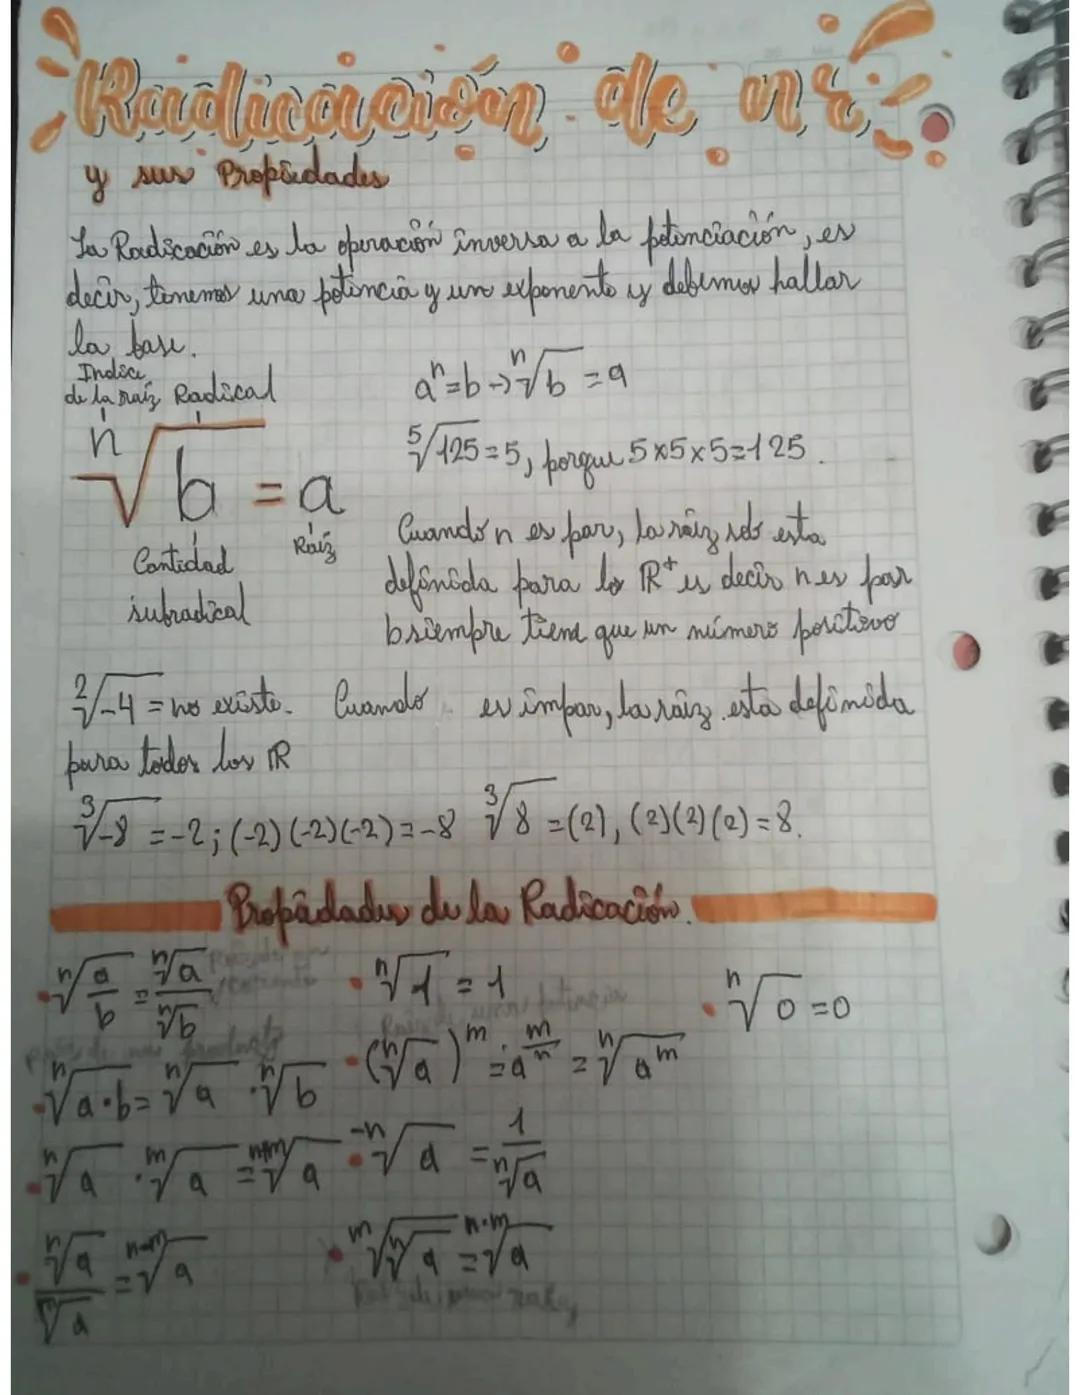 Radicación de nR
y sus Propiedades
La Radicación es la operación inversa a la potenciación, es
decir, tenemos una potencia y un exponente y debemos hallar
la base.
Indice
de la raíz Radical
n√b = a
Cantidad
subradical
Raíz
aⁿ=b → ⁿ√b = a
⁵√125 = 5, porque 5x5x5=125.
Cuando n es par, la raíz solo esta
definida para los R⁺ es decir n es par
b siempre tiene que un número positivo
²√-4 = no existe. Cuando es impar, la raíz esta definida
para todos los R
³√-8 = -2; (-2)(-2)(-2)=-8 ³√8 = (2), (2)(2)(2)=8.
Propiedades de la Radicación.
ⁿ√(a/b) = ⁿ√a / ⁿ√b
ⁿ√1 = 1
ⁿ√0 = 0
Raíz de una potencia
Raíz de un producto
(ⁿ√a)^m = a^(m/n) = ⁿ√a^m
ⁿ√a·b = ⁿ√a · ⁿ√b
ⁿ√a · ᵐ√a = ⁿ⁺ᵐ√a
⁻ⁿ√a = 1/ⁿ√a
ⁿ√a / ᵐ√a = ⁿ⁻ᵐ√a
ᵐ√ⁿ√a = ⁿ·ᵐ√a